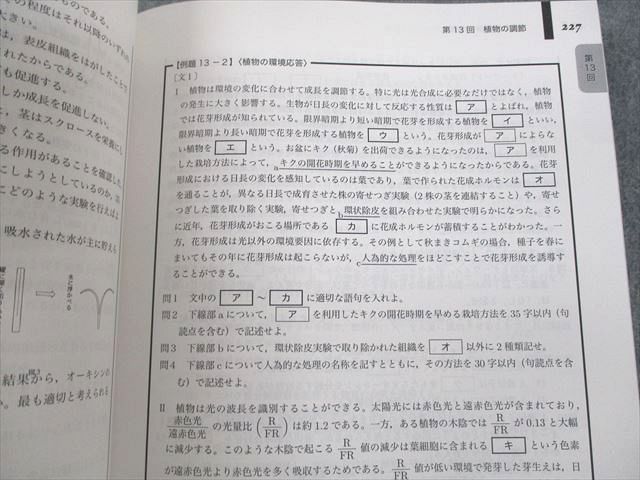 第13回 植物の調節 227
第13回
【例題13-2】〈植物の環境応答〉
[文1]
I 植物は環境の変化に合わせて成長を調節する。特に光は光合成に必要なだけではなく，植物
の発生に大きく影響する。生物が日長の変化に対して反応する性質は ア とよばれ，植物
では花芽形成が知られている。限界暗期より短い暗期で花芽を形成する植物を イ といい，
限界暗期より長い暗期で花芽を形成する植物を ウ という。花芽形成が ア によらな
い植物を エ という。お盆にキク（秋菊）を出荷できるようになったのは， ア を利用し
た栽培方法によって，aキクの開花時期を早めることができるようになったからである。花芽
形成における日長の変化を感知しているのは葉であり，葉で作られた花成ホルモンは オ
を通ることが，異なる日長で成育させた株の寄せつぎ実験（2株の茎を連結すること）や，寄せ
つぎした葉を取り除く実験，寄せつぎとb環状除皮を組み合わせた実験で明らかになった。さら
に近年，花芽形成がおこる場所である カ に花成ホルモンが蓄積することがわかった。一
方，花芽形成は光以外の環境要因に依存する。その例として秋まきコムギの場合，種子を春に
まいてもその年に花芽形成は起こらないが，c人為的な処理をほどこすことで花芽形成を誘導す
ることができる。
問1 文中の ア ～ カ に適切な語句を入れよ。
問2 下線部aについて， ア を利用したキクの開花時期を早める栽培方法を35字以内（句
読点を含む）で記述せよ。
問3 下線部bについて，環状除皮実験で取り除かれた組織を オ 以外に2種類記せ。
問4 下線部cについて人為的な処理の名称を記すとともに，その方法を30字以内（句読点を含
む）で記述せよ。
II 植物は光の波長を識別することができる。太陽光には赤色光と遠赤色光が含まれており，
赤色光/遠赤色光 の光量比（R/FR）は約1.2である。一方，ある植物の木陰では R/FR が0.13と大幅
に減少する。このような木陰で起こる R/FR 値の減少は葉細胞に含まれる キ という色素
が遠赤色光より赤色光を多く吸収するためである。R/FR 値が低い環境で発芽した芽生えは，日
ものである。
の程度はそれ以降のいずれの
大きい。
は，表皮組織をはがしたこと
れたからである。
も促進する。
しか成長を促進しない。
，茎はスクロースを栄養に
きくなる。
る作用があることを確認した
にしようとしているのか，茎
どのような実験を行えばよ
吸水された水が主に貯える
水に浮かべる
結果から，オーキシンの
か。最も適切と考えられる